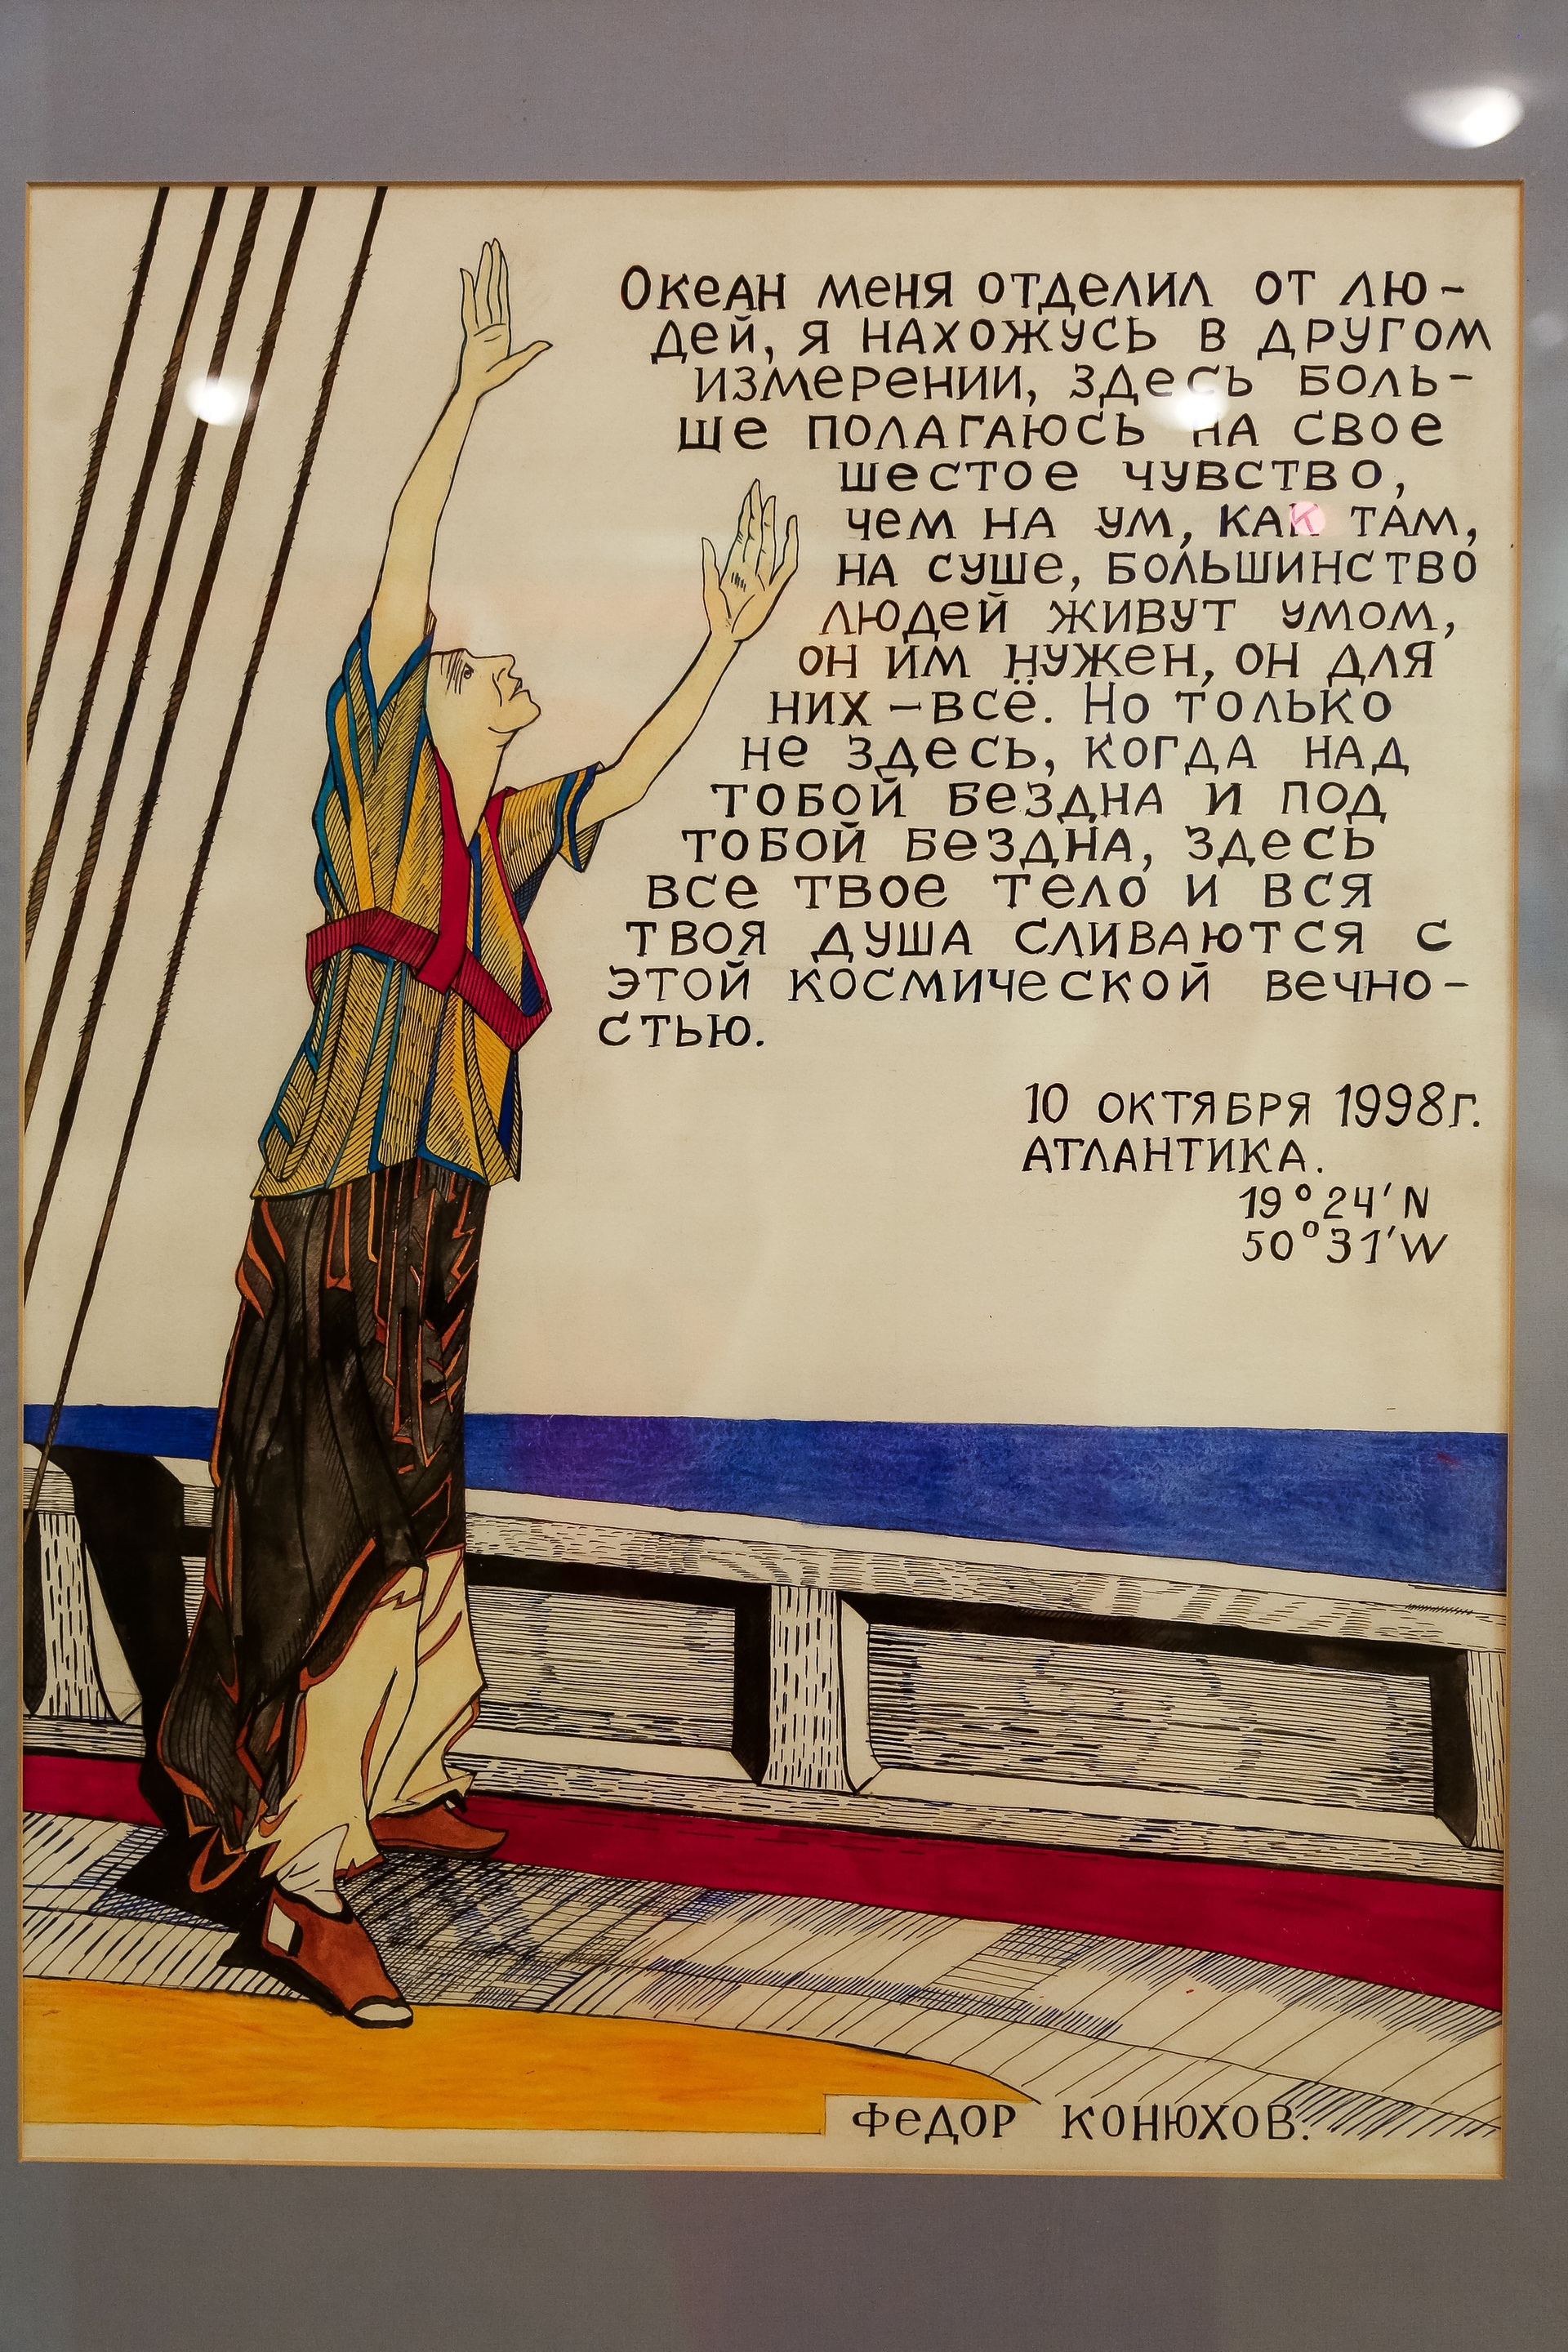 Океан меня отделил от лю-
дей, я нахожусь в другом
измерении, здесь боль-
ше полагаюсь на свое
шестое чувство,
чем на ум, как там,
на суше, большинство
людей живут умом,
он им нужен, он для
них – всё. Но только
не здесь, когда над
тобой бездна и под
тобой бездна, здесь
все твое тело и вся
твоя душа сливаются с
этой космической вечно-
стью.
10 октября 1998г.
Атлантика.
19°24'N
50°31'W
Федор Конюхов.